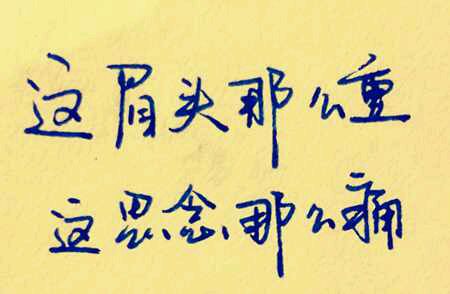 这眉头那么重
这思念那么痛